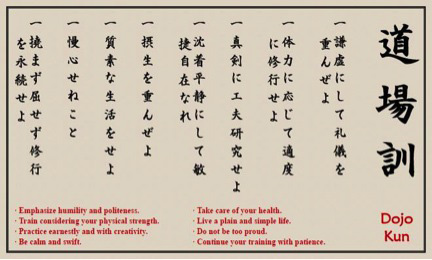 道場訓
一 謙虚にして礼儀を
重んぜよ
一 体力に応じて適度
に修行せよ
一 真剣に工夫研究せよ
一 沈着平静にして敏
捷自在なれ
一 摂生を重んぜよ
一 質素な生活をせよ
一 慢心せねこと
一 撓まず屈せず修行
を永続せよ
Dojo
Kun
· Emphasize humility and politeness.
· Train considering your physical strength.
· Practice earnestly and with creativity.
· Be calm and swift.
· Take care of your health.
· Live a plain and simple life.
· Do not be too proud.
· Continue your training with patience.